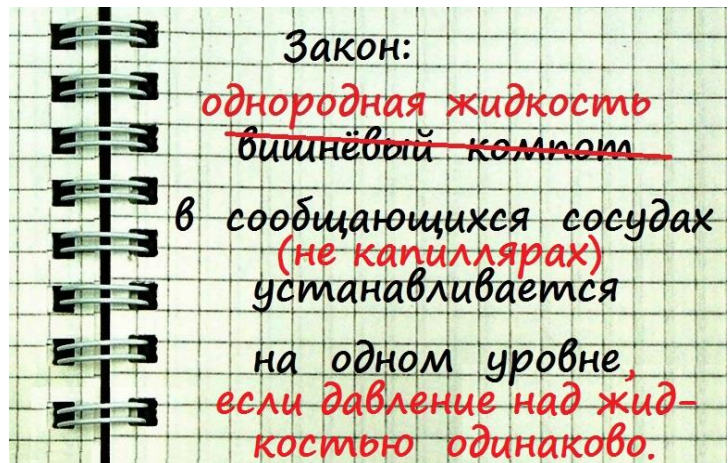 Закон:
однородная жидкость
вишнёвый компот
в сообщающихся сосудах
(не капиллярах)
устанавливается
на одном уровне,
если давление над жид-
костью одинаково.